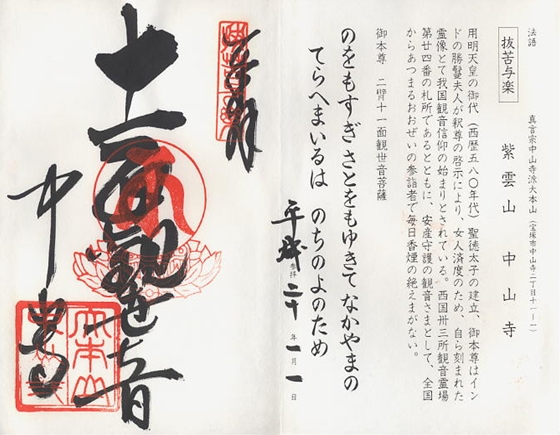 法語
抜苦与楽
真言宗中山寺派大本山(宝塚市中山寺二丁目十一ー一)
紫雲山 中山寺
用明天皇の御代(西歴五八〇年代)聖徳太子の建立、御本尊はイン
ドの勝鬘夫人が釈尊の啓示により、女人済度のため、自ら刻まれた
霊像とて我国観音信仰の始まりとされている。西国卅三所観音霊場
第廿四番の札所であるとともに、安産守護の観音さまとして、全国
からあつまるおおぜいの参詣者で毎日香煙の絶えまがない。
御本尊 二臂十一面観世音菩薩
のをもすぎさとをもゆきてなかやまの
てらへまいるは のちのよのため
平成二十年一月一日
参拝
奉拝
十一面観世音
中山寺